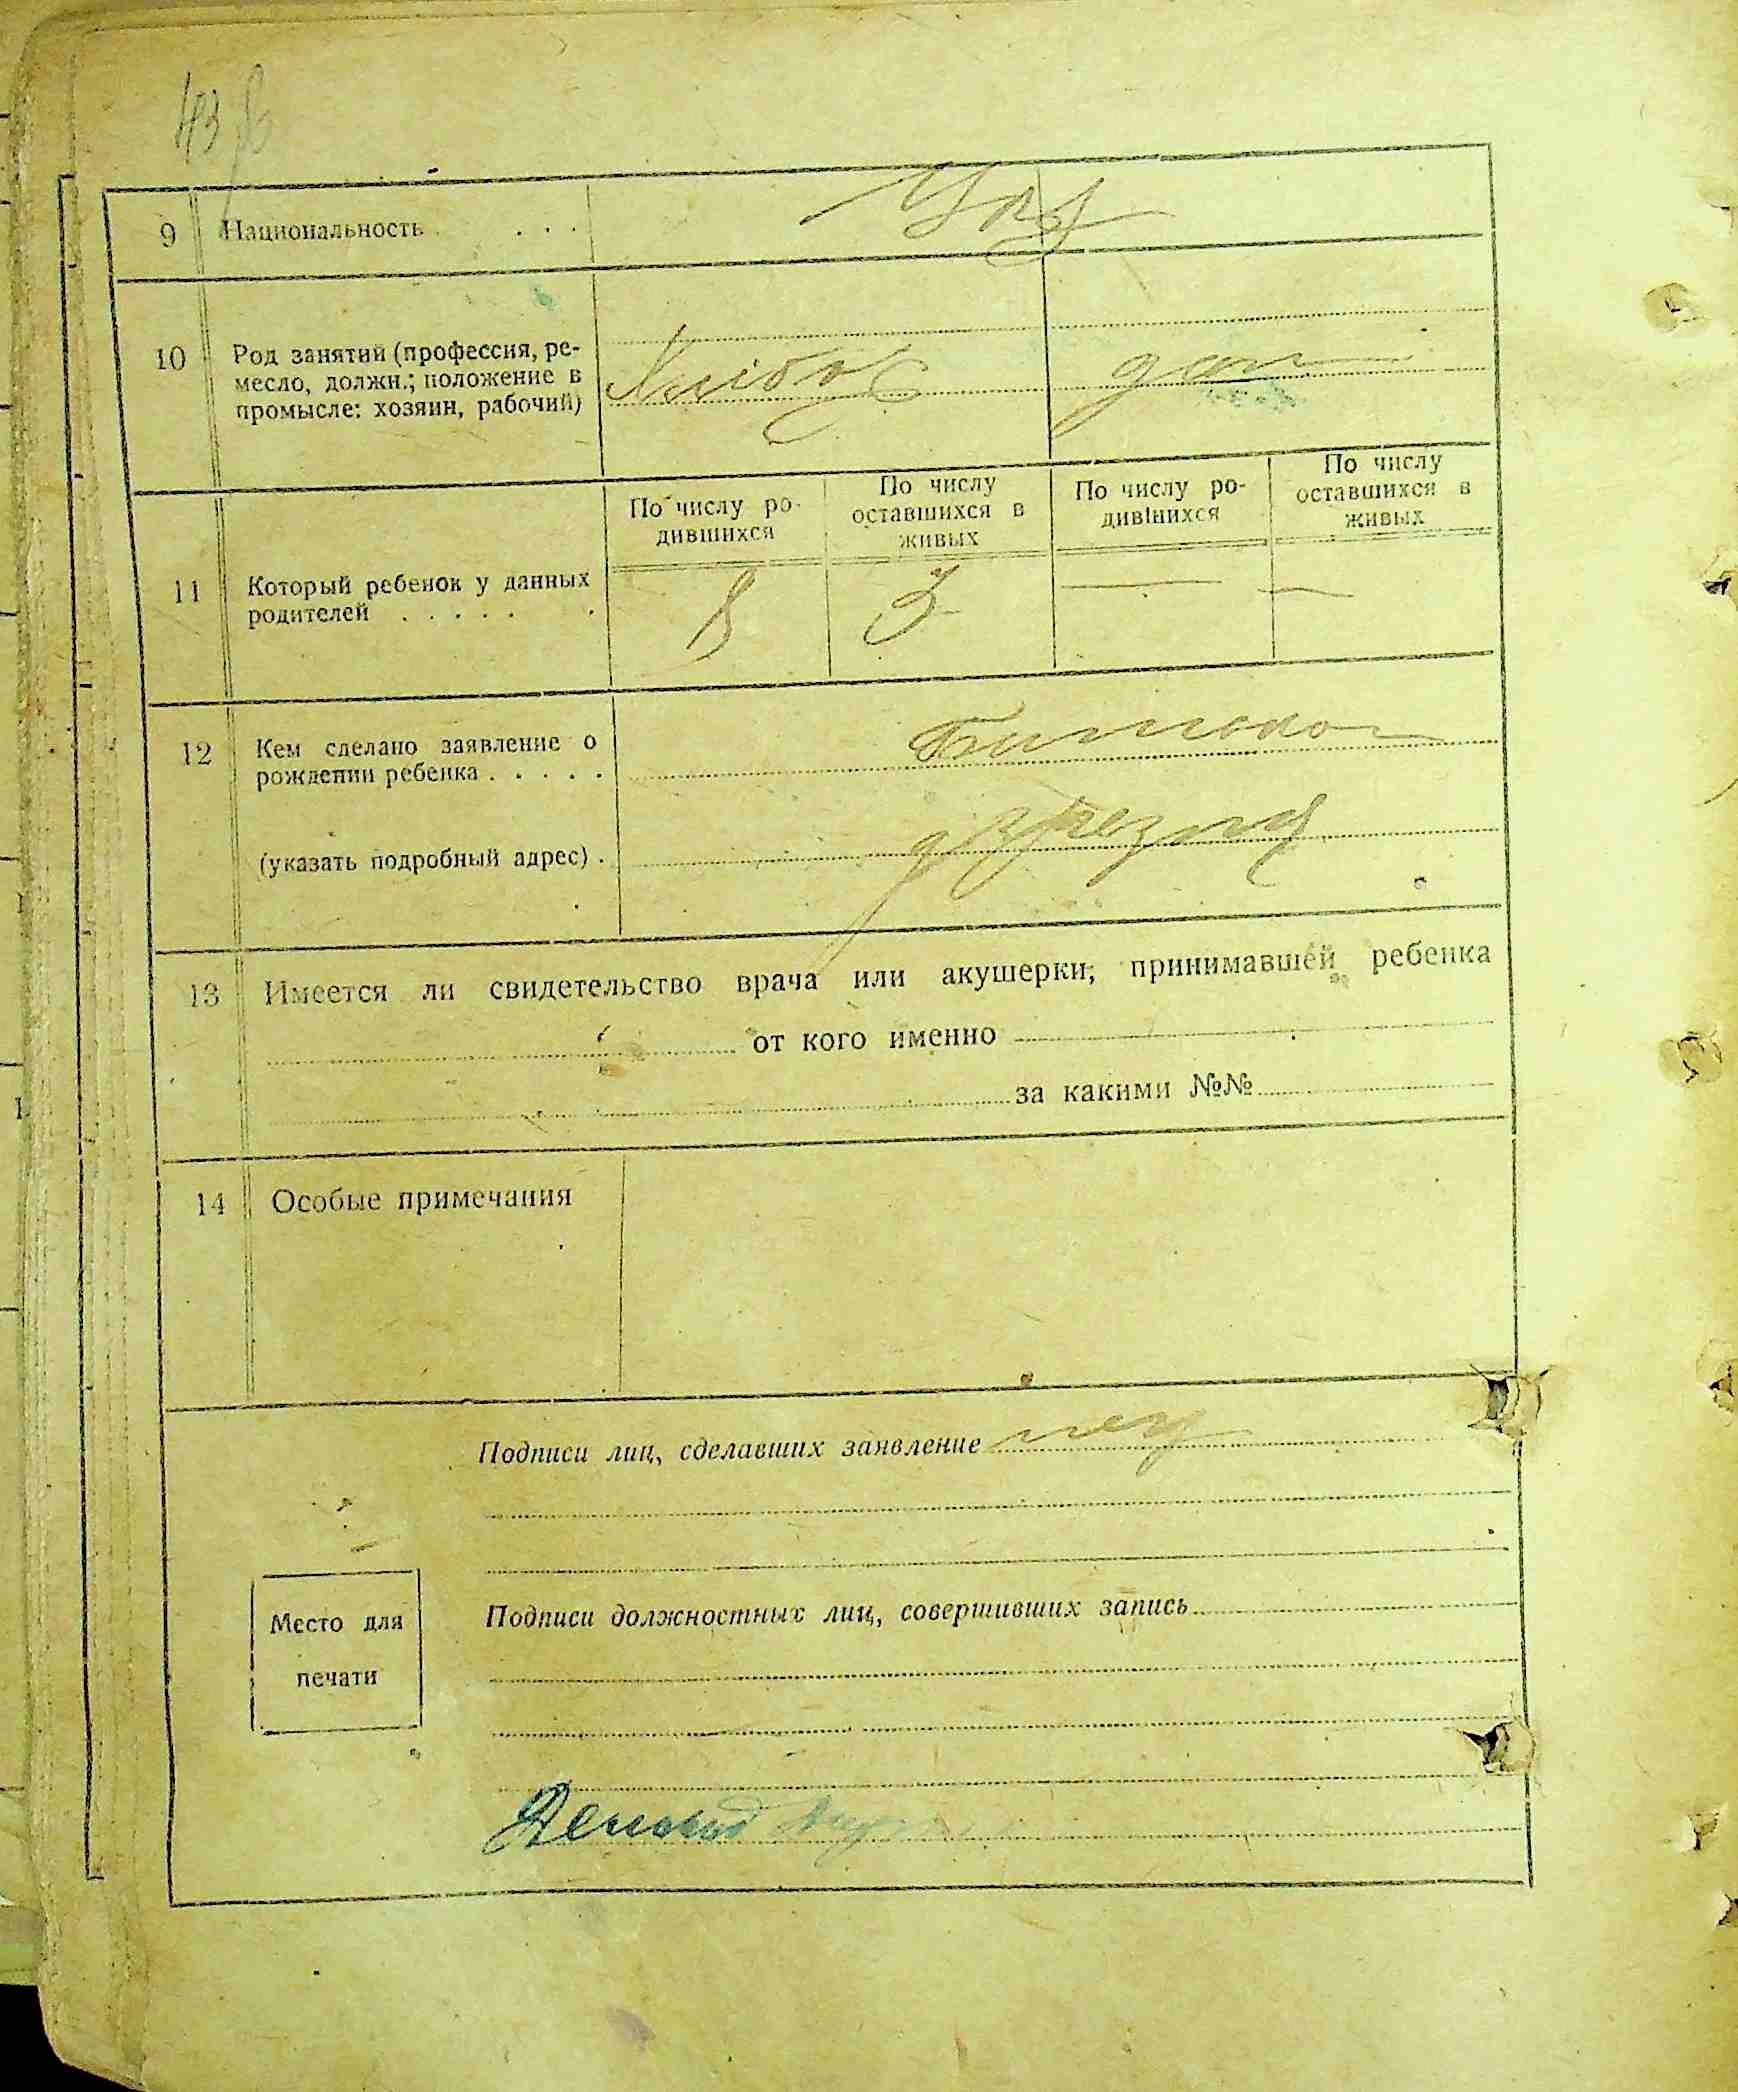 43
9 Национальность . . . . Укр
10 Род занятий (профессия, ре-
месло, должн.; положение в
промысле: хозяин, рабочий)
Хлібор дом
По числу ро-
дившихся
По числу
оставшихся в
живых
По числу ро-
дившихся
По числу
оставшихся в
живых
11 Который ребенок у данных
родителей . . . . . .
8 3 — —
12 Кем сделано заявление о
рождении ребенка . . . . .
Батьком
(указать подробный адрес) .
13 Имеется ли свидетельство врача или акушерки, принимавшей ребенка
от кого именно
за какими №№
14 Особые примечания
Подписи лиц, сделавших заявление
Место для
печати
Подписи должностных лиц, совершивших запись